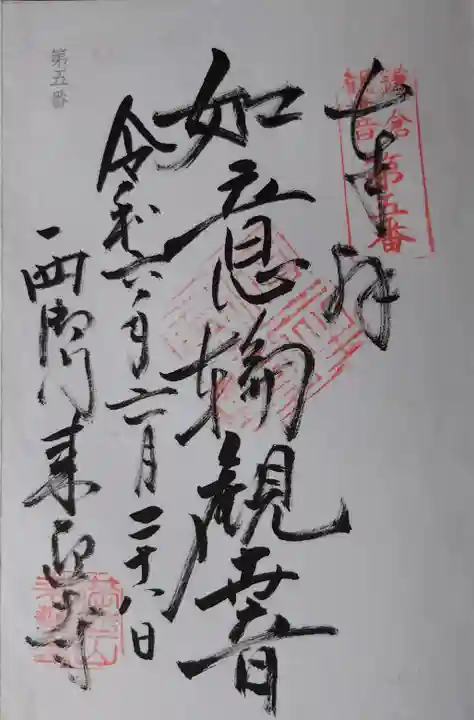 奉拝
鎌倉
観音
第五番
如意輪観世音
令和六年六月二十八日
西御門来迎寺
第五番